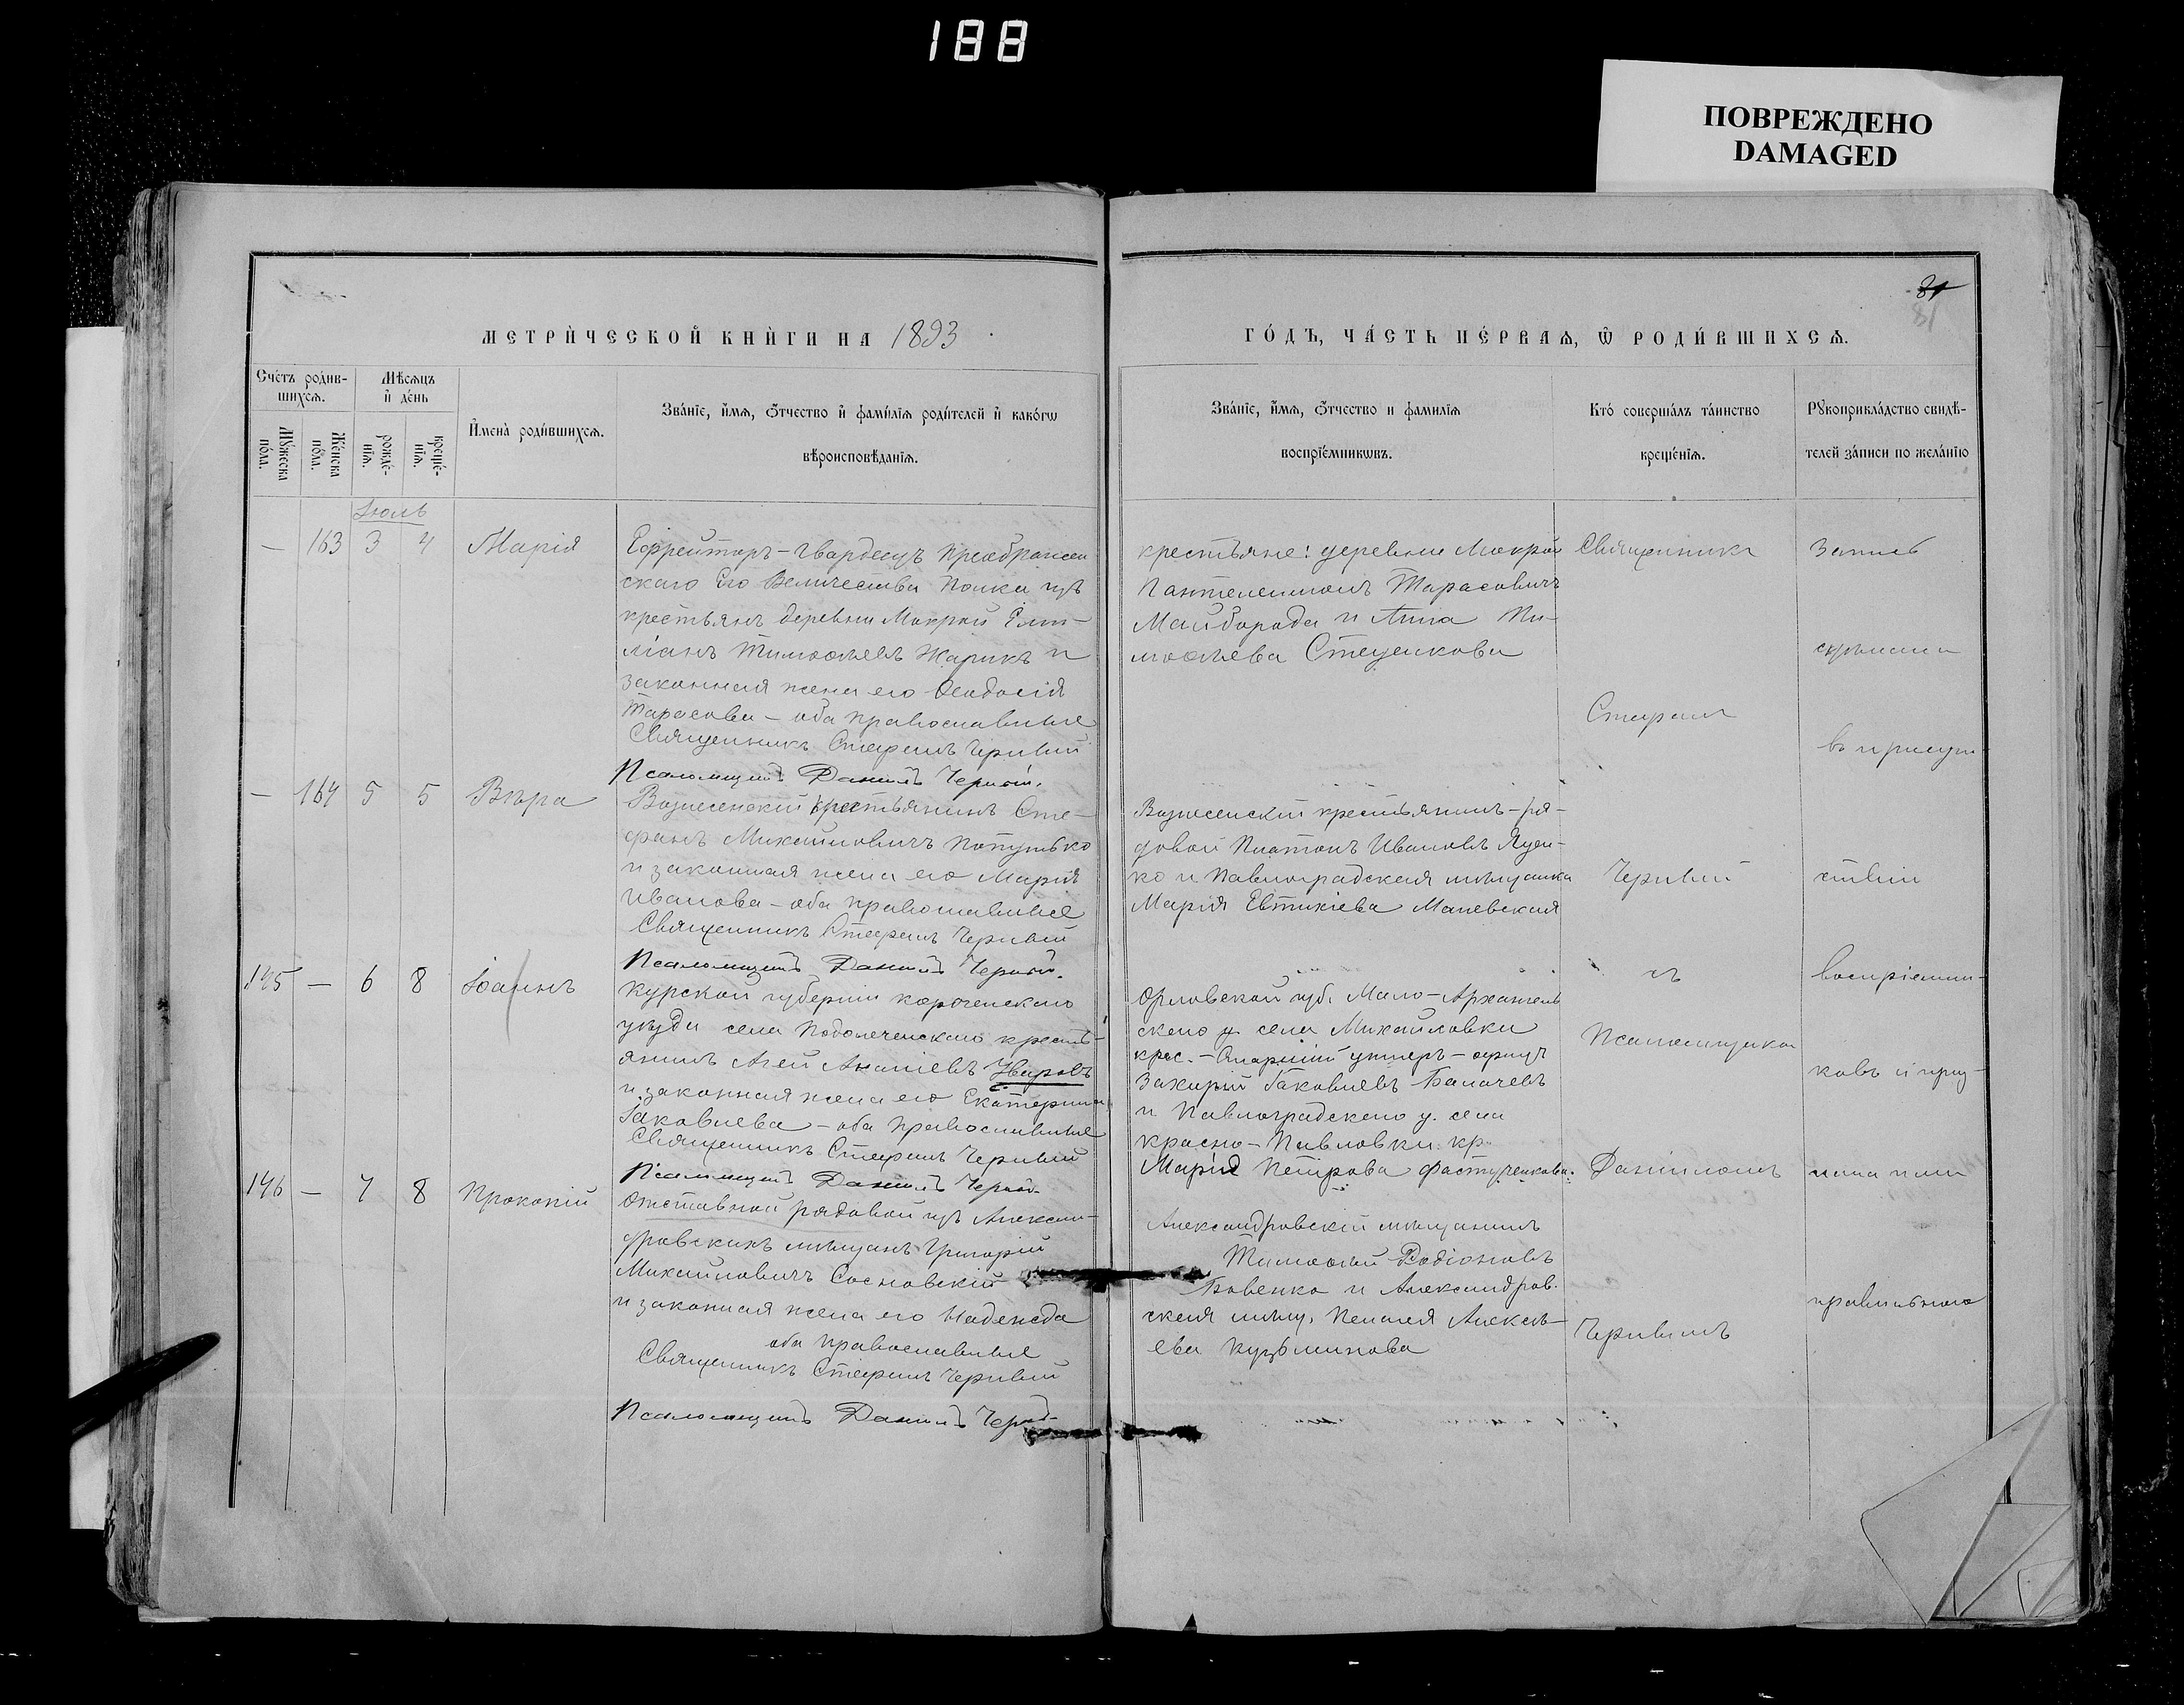 188
ПОВРЕЖДЕНО
DAMAGED
81
МЕТРИЧЕСКОЙ КНИГИ НА 1893
ГОДЪ, ЧАСТЬ ПЕРВАЯ, Ѡ РОДИВШИХСЯ.
Счетъ родив-
шихся.
Мѣсяцъ
и день
Мужеска
пола.
Женска
пола.
рожде-
нія.
креще-
нія.
Имена родившихся.
Званіе, имя, отчество и фамилія родителей и какогѡ
вѣроисповѣданія.
Званіе, имя, отчество и фамилія
воспріемникѡвъ.
Кто совершалъ таинство
крещенія.
Рукоприкладство свидѣ-
телей записи по желанію
Іюль
— 163 3 4 Марія
Ефрейторъ-гвардеецъ Преображен
скаго Его Величества Полка изъ
крестьянъ деревни Мокрой Еми-
ліанъ Тимоѳеевъ Жарикъ и
законная жена его Ѳеодосія
Тарасова - оба православные
Священникъ Стефанъ Черный
Псаломщикъ Даніилъ Черный.
крестьяне: деревни Мокрой
Пантелеимонъ Тарасовичъ
Майборода и Анна Ти-
моѳеева Стеценкова
— 164 5 5 Вѣра
Вознесенскій крестьянинъ Сте-
фанъ Михайловичъ
и законная жена его Марія
Иванова - оба православные
Священникъ Стефанъ Черный
Псаломщикъ Даніилъ Черный.
Вознесенскій крестьянинъ - ря-
довой Платонъ Ивановъ Яцен-
ко и Павлоградская мѣщанка
Марія Евтихіева Маневская
145 — 6 8 Іоаннъ
Курской губерніи Корочанскаго
уѣзда села кресть-
янинъ Агей Ананіевъ Уваровъ
и законная жена его Екатерина
Іаковлева - оба православные
Священникъ Стефанъ Черный
Псаломщикъ Даніилъ Черный.
Орловской губ. Мало-Архангель
скаго у. села Михайловки
крес. - Старшій унтеръ-офиц
Захарій Іаковлевъ
и Павлоградскаго у. села
Красно-Павловки кр.
Марія Петрова
146 — 7 8 Прокопій
Отставной рядовой изъ Алексан-
дровскихъ мѣщанъ Григорій
Михайловичъ Сосновскій
и законная жена его Надежда
оба православные
Священникъ Стефанъ Черный
Псаломщикъ Даніилъ Черный
Александровскій мѣщанинъ
Тимоѳей Родіоновъ
Бовенко и Александров.
ская мѣщ. Пелагея Алексѣ-
ева Кузьминова
Священникъ
Стефанъ
Черный
съ
Псаломщикомъ
Даніиломъ
Чернымъ
Запись
въ присут-
ствіи
воспріемни-
ковъ и приз-
правильною